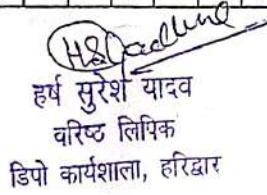 हर्ष सुरेश यादव
वरिष्ठ लिपिक
डिपो कार्यशाला, हरिद्वार